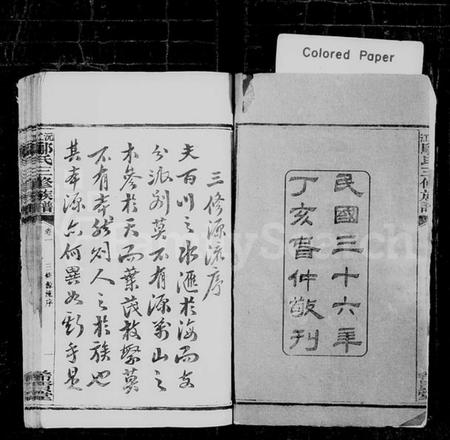 Colored Paper
民國三十六年
丁亥春仲敬刊
三修源流序
夫百川之水滙於海而支
分派別莫不有源萬山之
木參於天而葉茂枝繁莫
不有本然則人之於族也
其本源亦何異如斯乎是
氏三修族譜
卷一
三修源流序
FamilySearch